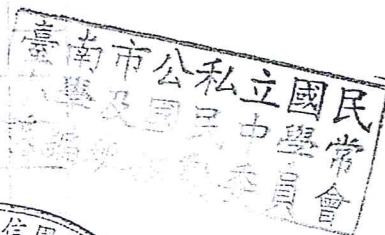 臺南市公私立國民
學及國民中學常
編動委員會
信用